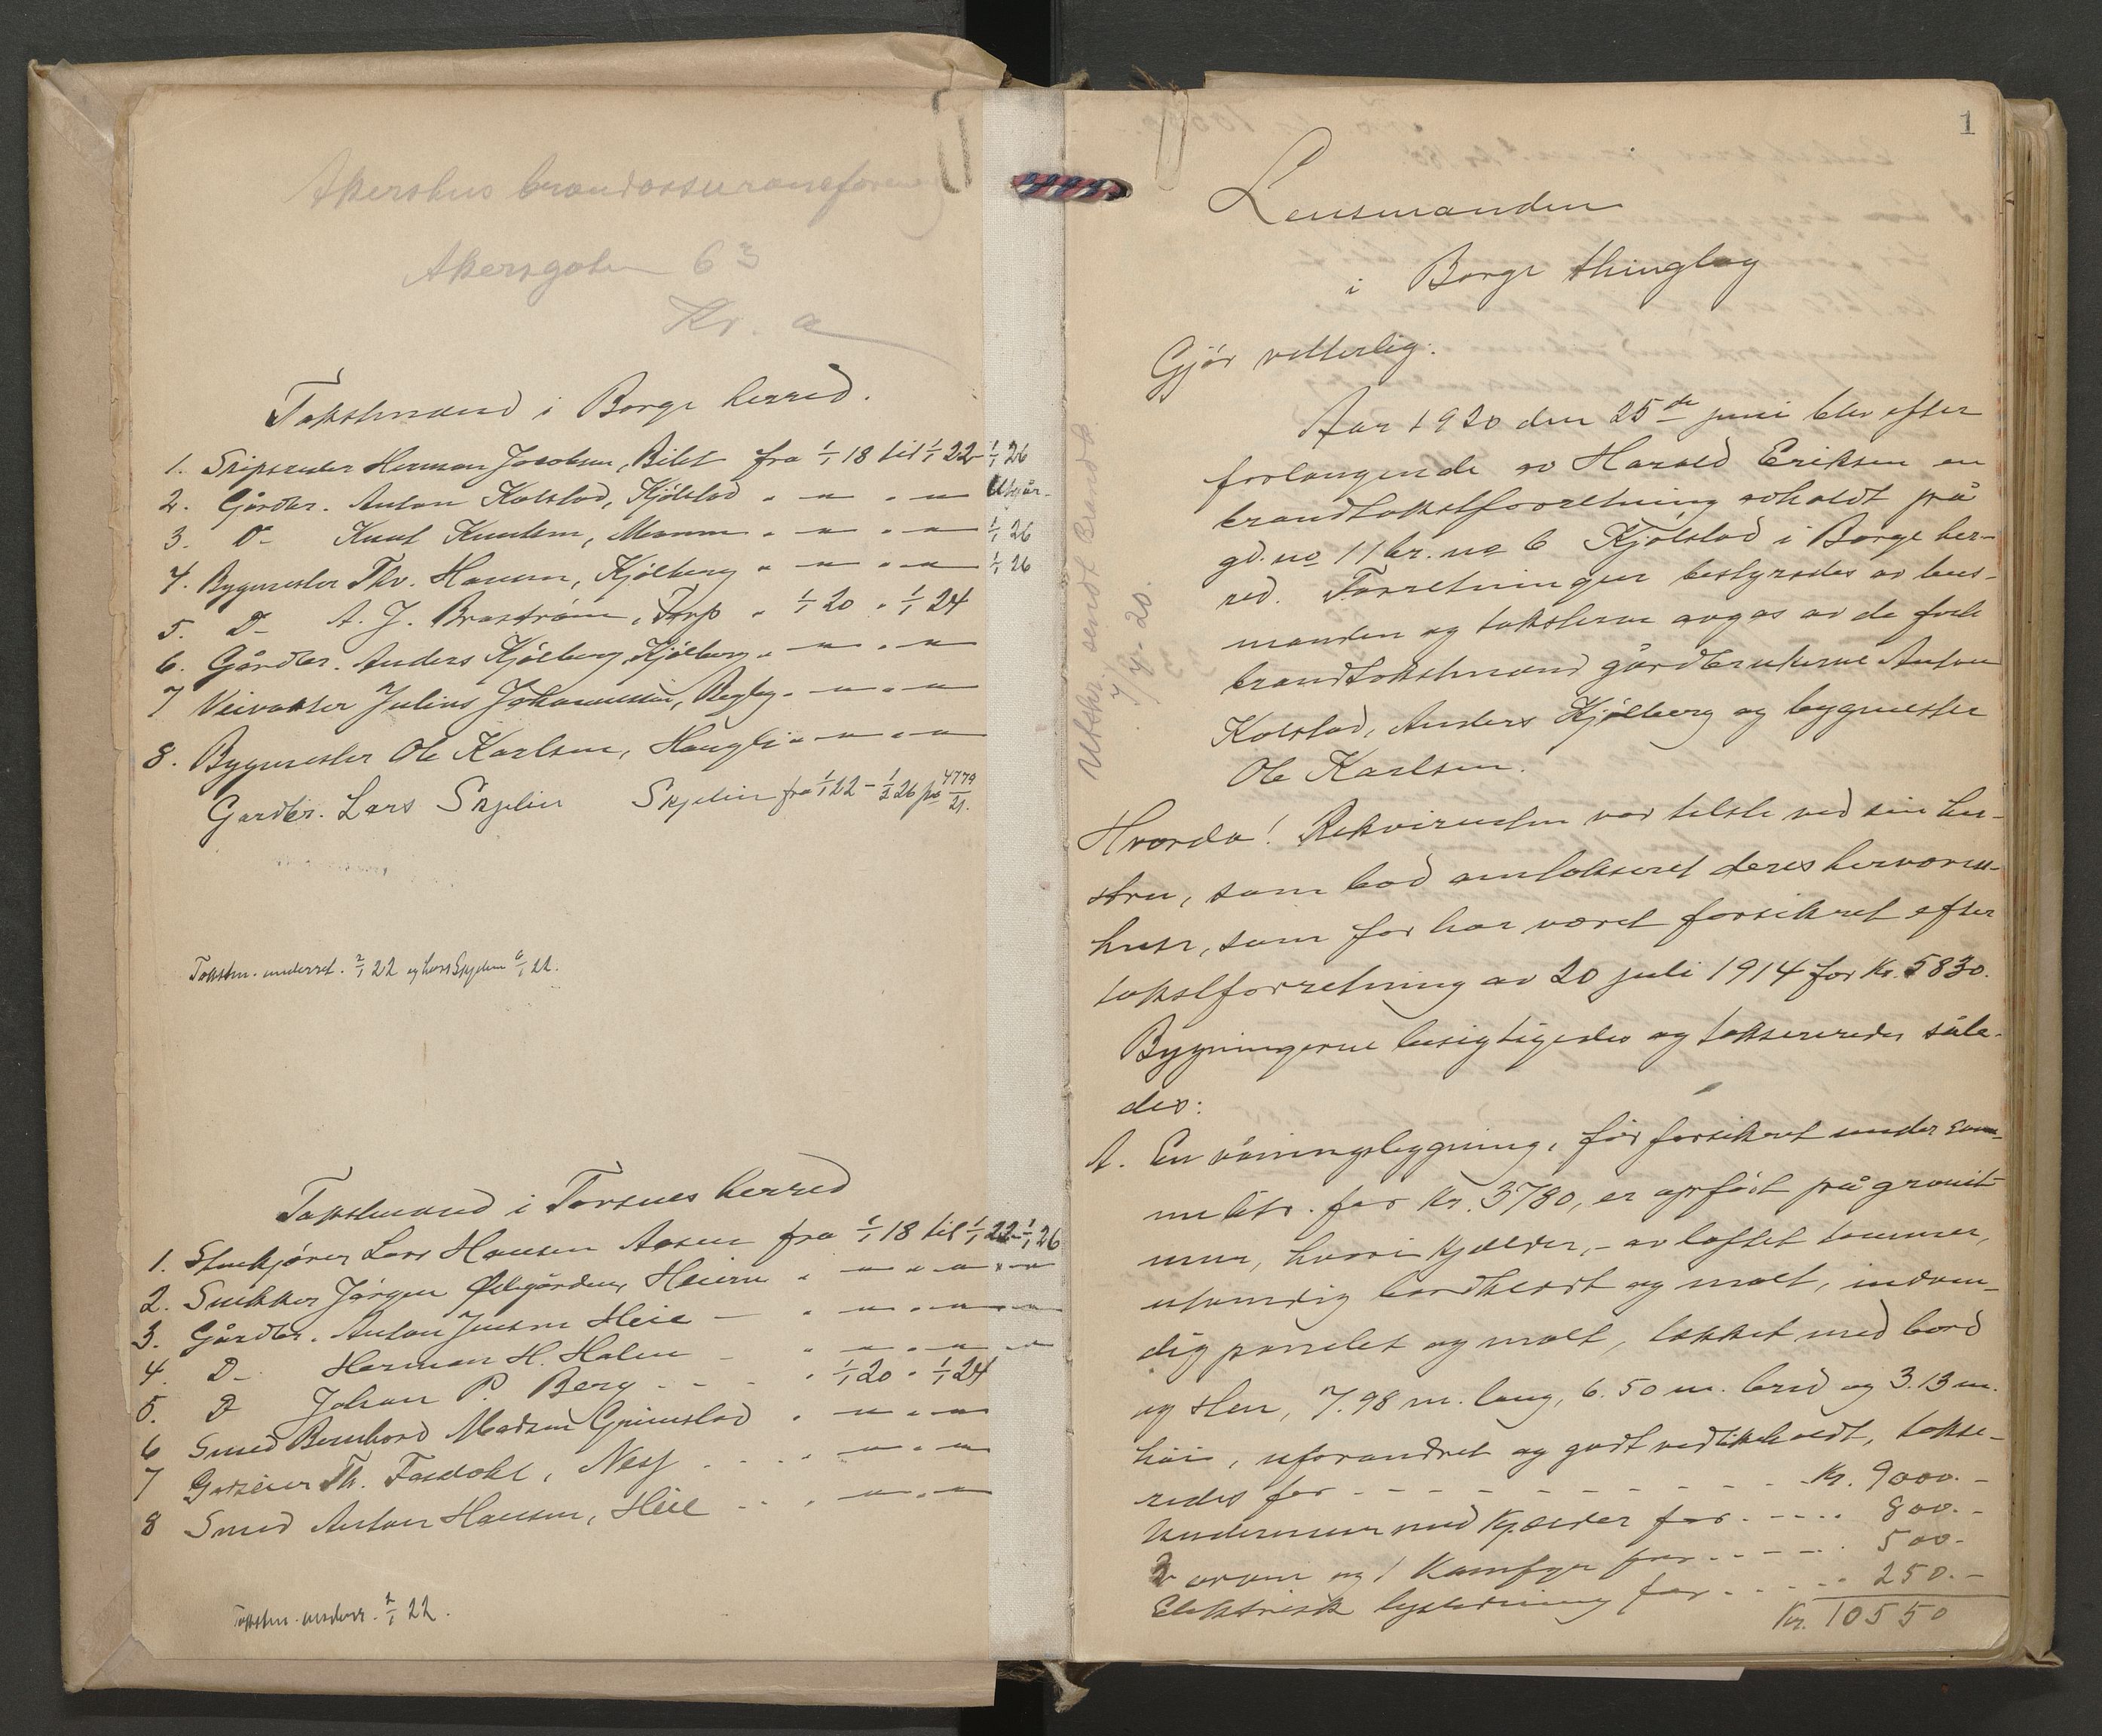 Akershus brandassuranseforening
Akersgaten 63
Kr. a
Takstmænd i Borge herred.
1. Skipsreder Herman Jacobsen, Bilet fra 1/1 18 til 1/1 22 - 1/1 26
2. Gårdbr. Anton Kolstad, Kjölstad " — " — Utgår.
3. D- Knut Knutsen, Moum " — " — 1/1 26
4. Bygmester Thv. Hansen, Kjölberg " — " — 1/1 26
5. D- A. J. Braström, Torp " 1/1 20 " 1/1 24
6. Gårdbr. Anders Kjölberg, Kjölberg " — " —
7 Veivokter Julius Johannessen, Begby " — " —
8. Bygmester Ole Karlsen, Haugli " — " —
Gardbr. Lars Skjelin Skjelin fra 1/1 22 - 1/1 26 på 4779/21.
Takstm. underret. 2/1 22 og Lars Skjelin 6/1 22.
Takstmænd i Torsnes herred
1. Stenhjører Lars Hansen Aasen fra 1/1 18 til 1/1 22 - 1/1 26
2. Snekker Jörgen Ödegården, Heiern " — " —
3. Gårdbr. Anton Jensen Heie — " — " —
4. D- Herman H. Holm — " — " —
5. D Johan P. Berg - - - " 1/1 20 " 1/1 24
6 Smed Bernhard Madsen Grimstad " — " —
7 Godseier Th. Fasdahl, Nes - - - " — " —
8 Smed Anton Hansen, Heie - - " — " —
Takstm. underr. 2/1 22.
1
Lensmanden
i Borge thinglag
Gjör vitterlig:
Aar 1920 den 25de juni blev efter
forlangende av Harald Eriksen en
brandtakstforretning avholdt på
gd. no 11 br. no 6 Kjölstad i Borge her-
red. Forretningen bestyredes av lens-
manden og taksterne avgas av de faste
brandtakstmænd gårdbrukerne Anton
Kolstad, Anders Kjölberg og bygmester
Ole Karlsen.
Utskr. sendt Brand d.
7/7 - 20.
Hvorda! Rekvirenten var tilstede ved sin hu-
stru, som bad omtakseret deres herværen-
huse, som för har været forsikret efter
takstforretning av 20 juli 1914 for Kr. 5830.
Bygningerne besigtigedes og takseredes såle-
des:
A. En våningsbygning, för forsikret under sam-
me litr. for Kr. 3780, er opfört på granit-
mur, hvori kjælder, - av laftet tømmer,
utvendig bordklædt og malt, indven-
dig panelet og malt, tækket med bord
og sten, 7.98 m. lang, 6.50 m. bred og 3.13 m.
höi, uforandret og godt vedlikeholdt, takse-
redes for - - - - - - - - - - Kr. 9000. -
Undermur med kjælder for - - - - 800. -
2 ovner og 1 Komfyr for - - - - - 500 -
Elektrisk lysledning for - - - - - 250. -
Kr. 10550